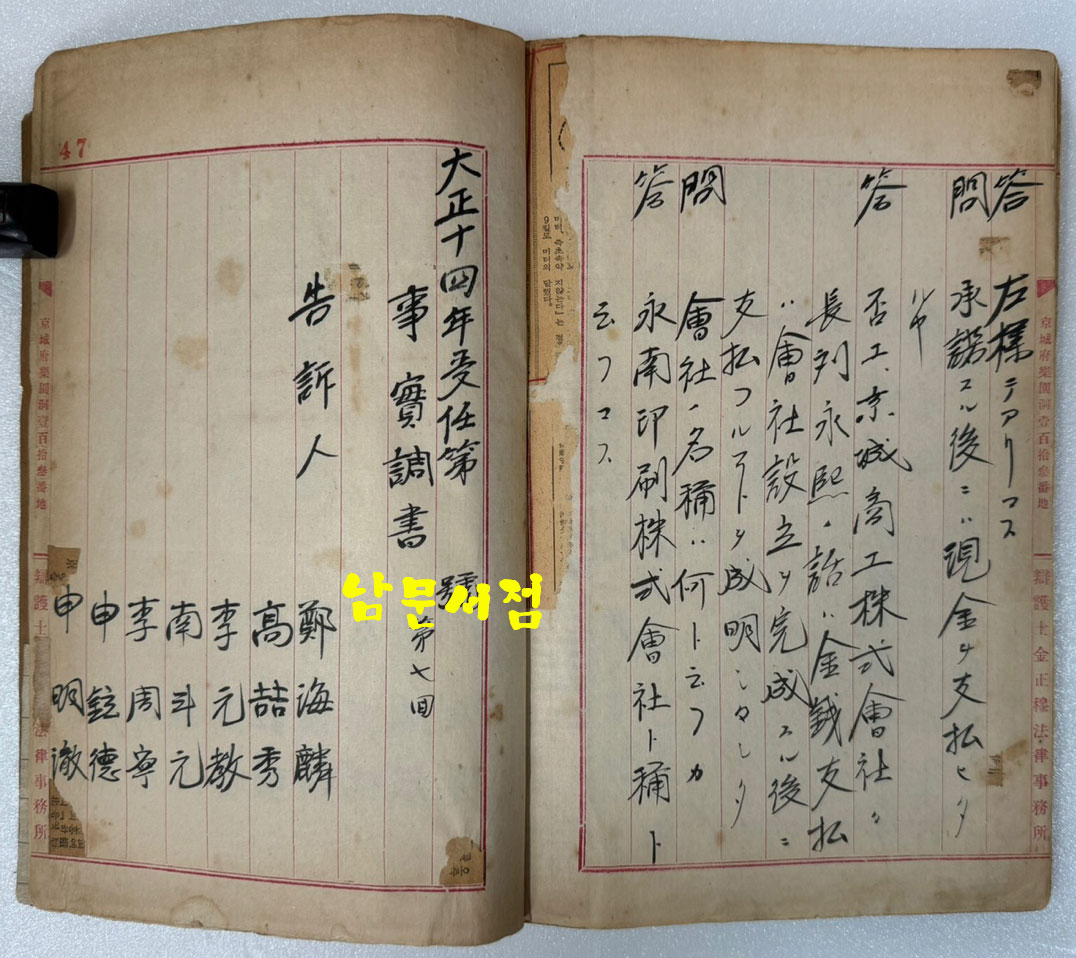 答 左樣テアリマス
問 承諾スル後ニハ現金ヲ支払ヒタ
ルヤ
答 否エ、京城商工株式会社々
長判永熙ノ話ハ金銭支払
ハ會社設立ヲ完成スル後ニ
支払フルコトヲ成明シタ
問 會社ノ名稱ハ何ト云フカ
答 永南印刷株式會社ト稱ト
云フマス
京城府樂園洞壹百拾參番地
辯護士金正穆法律事務所
47
大正十四年受任第 號
事實調書 第七回
告訴人 鄭海麟
高喆秀
李元教
南斗元
李周寧
申鉉德
申明澈
京城府樂園洞壹百拾參番地
辯護士 法律事務所
남문서점